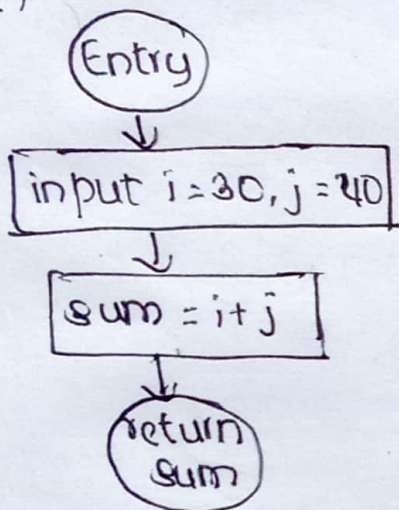 Entry
input i=30, j=40
sum = i+j
return
sum